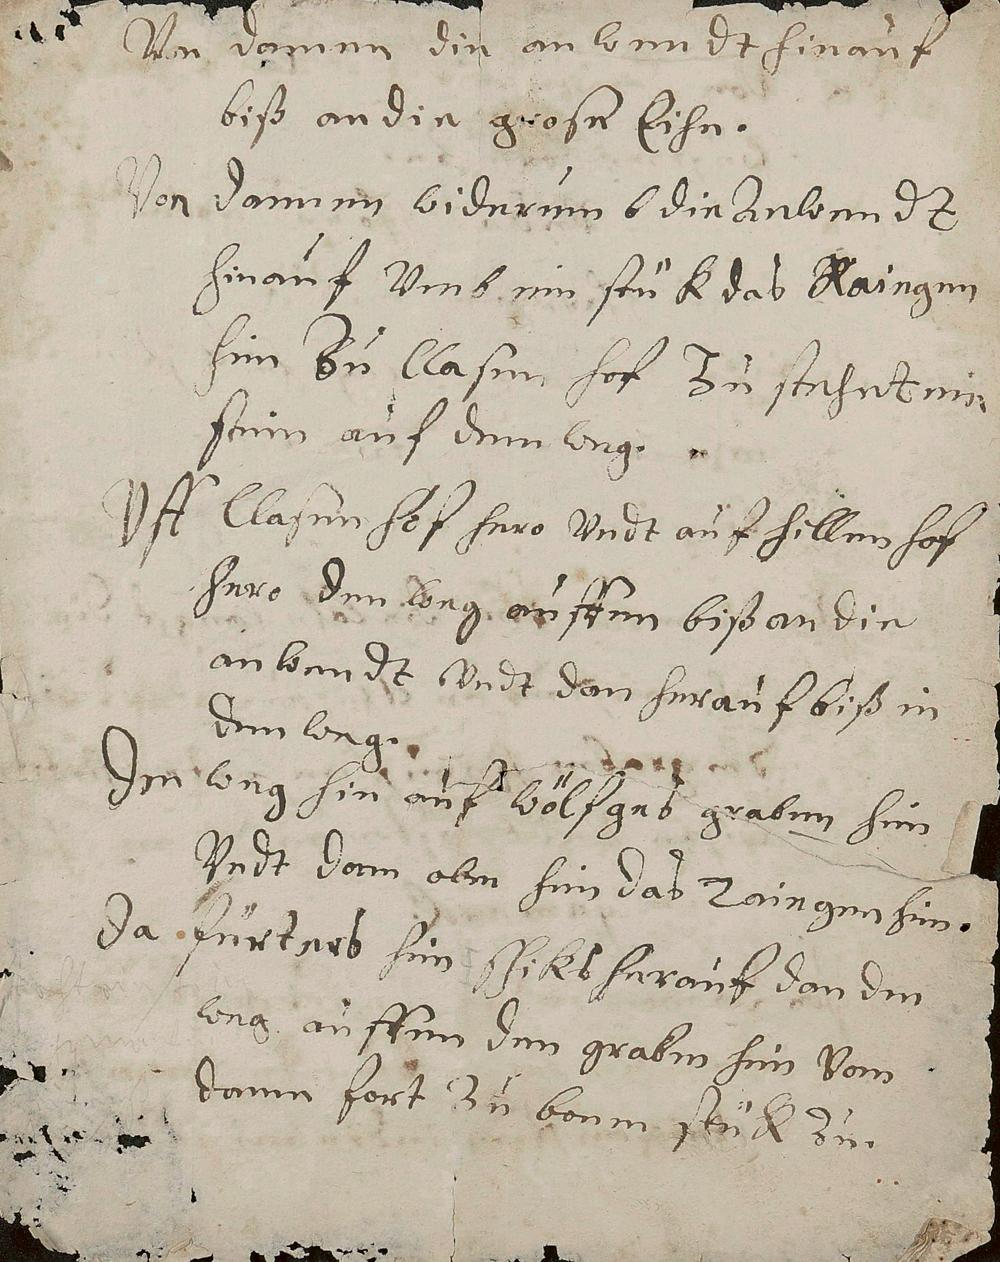 Von dannen die anwendt hinauf
biß an die grose Eihe.
Von dannen widerumb die Anwendt
hinauf Vmb ein stük das Raingen
hin Zu Clasen hof Zu stehet ein
stein auf dem weg.
Vff Clasen hof hero Vndt auf hillen hof
hero den weg auffen biß an die
anwendt Vndt dan herauf biß in
den weg.
Den weg hin auf wölfges graben hin
Vndt dan oben hin das Raingen hin.
Da fürters hin schiks herauf dan den
weg auffen den graben hin Vom
dann fort Zu bonn stük Zu.